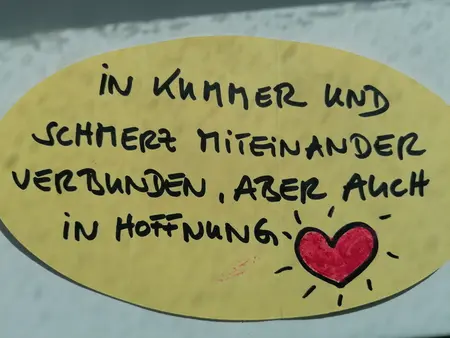 iN KUMMER UND
SCHMERZ MiTEiNANDER
VERBUNDEN, ABER AUCH
iN HOFFNUNG.